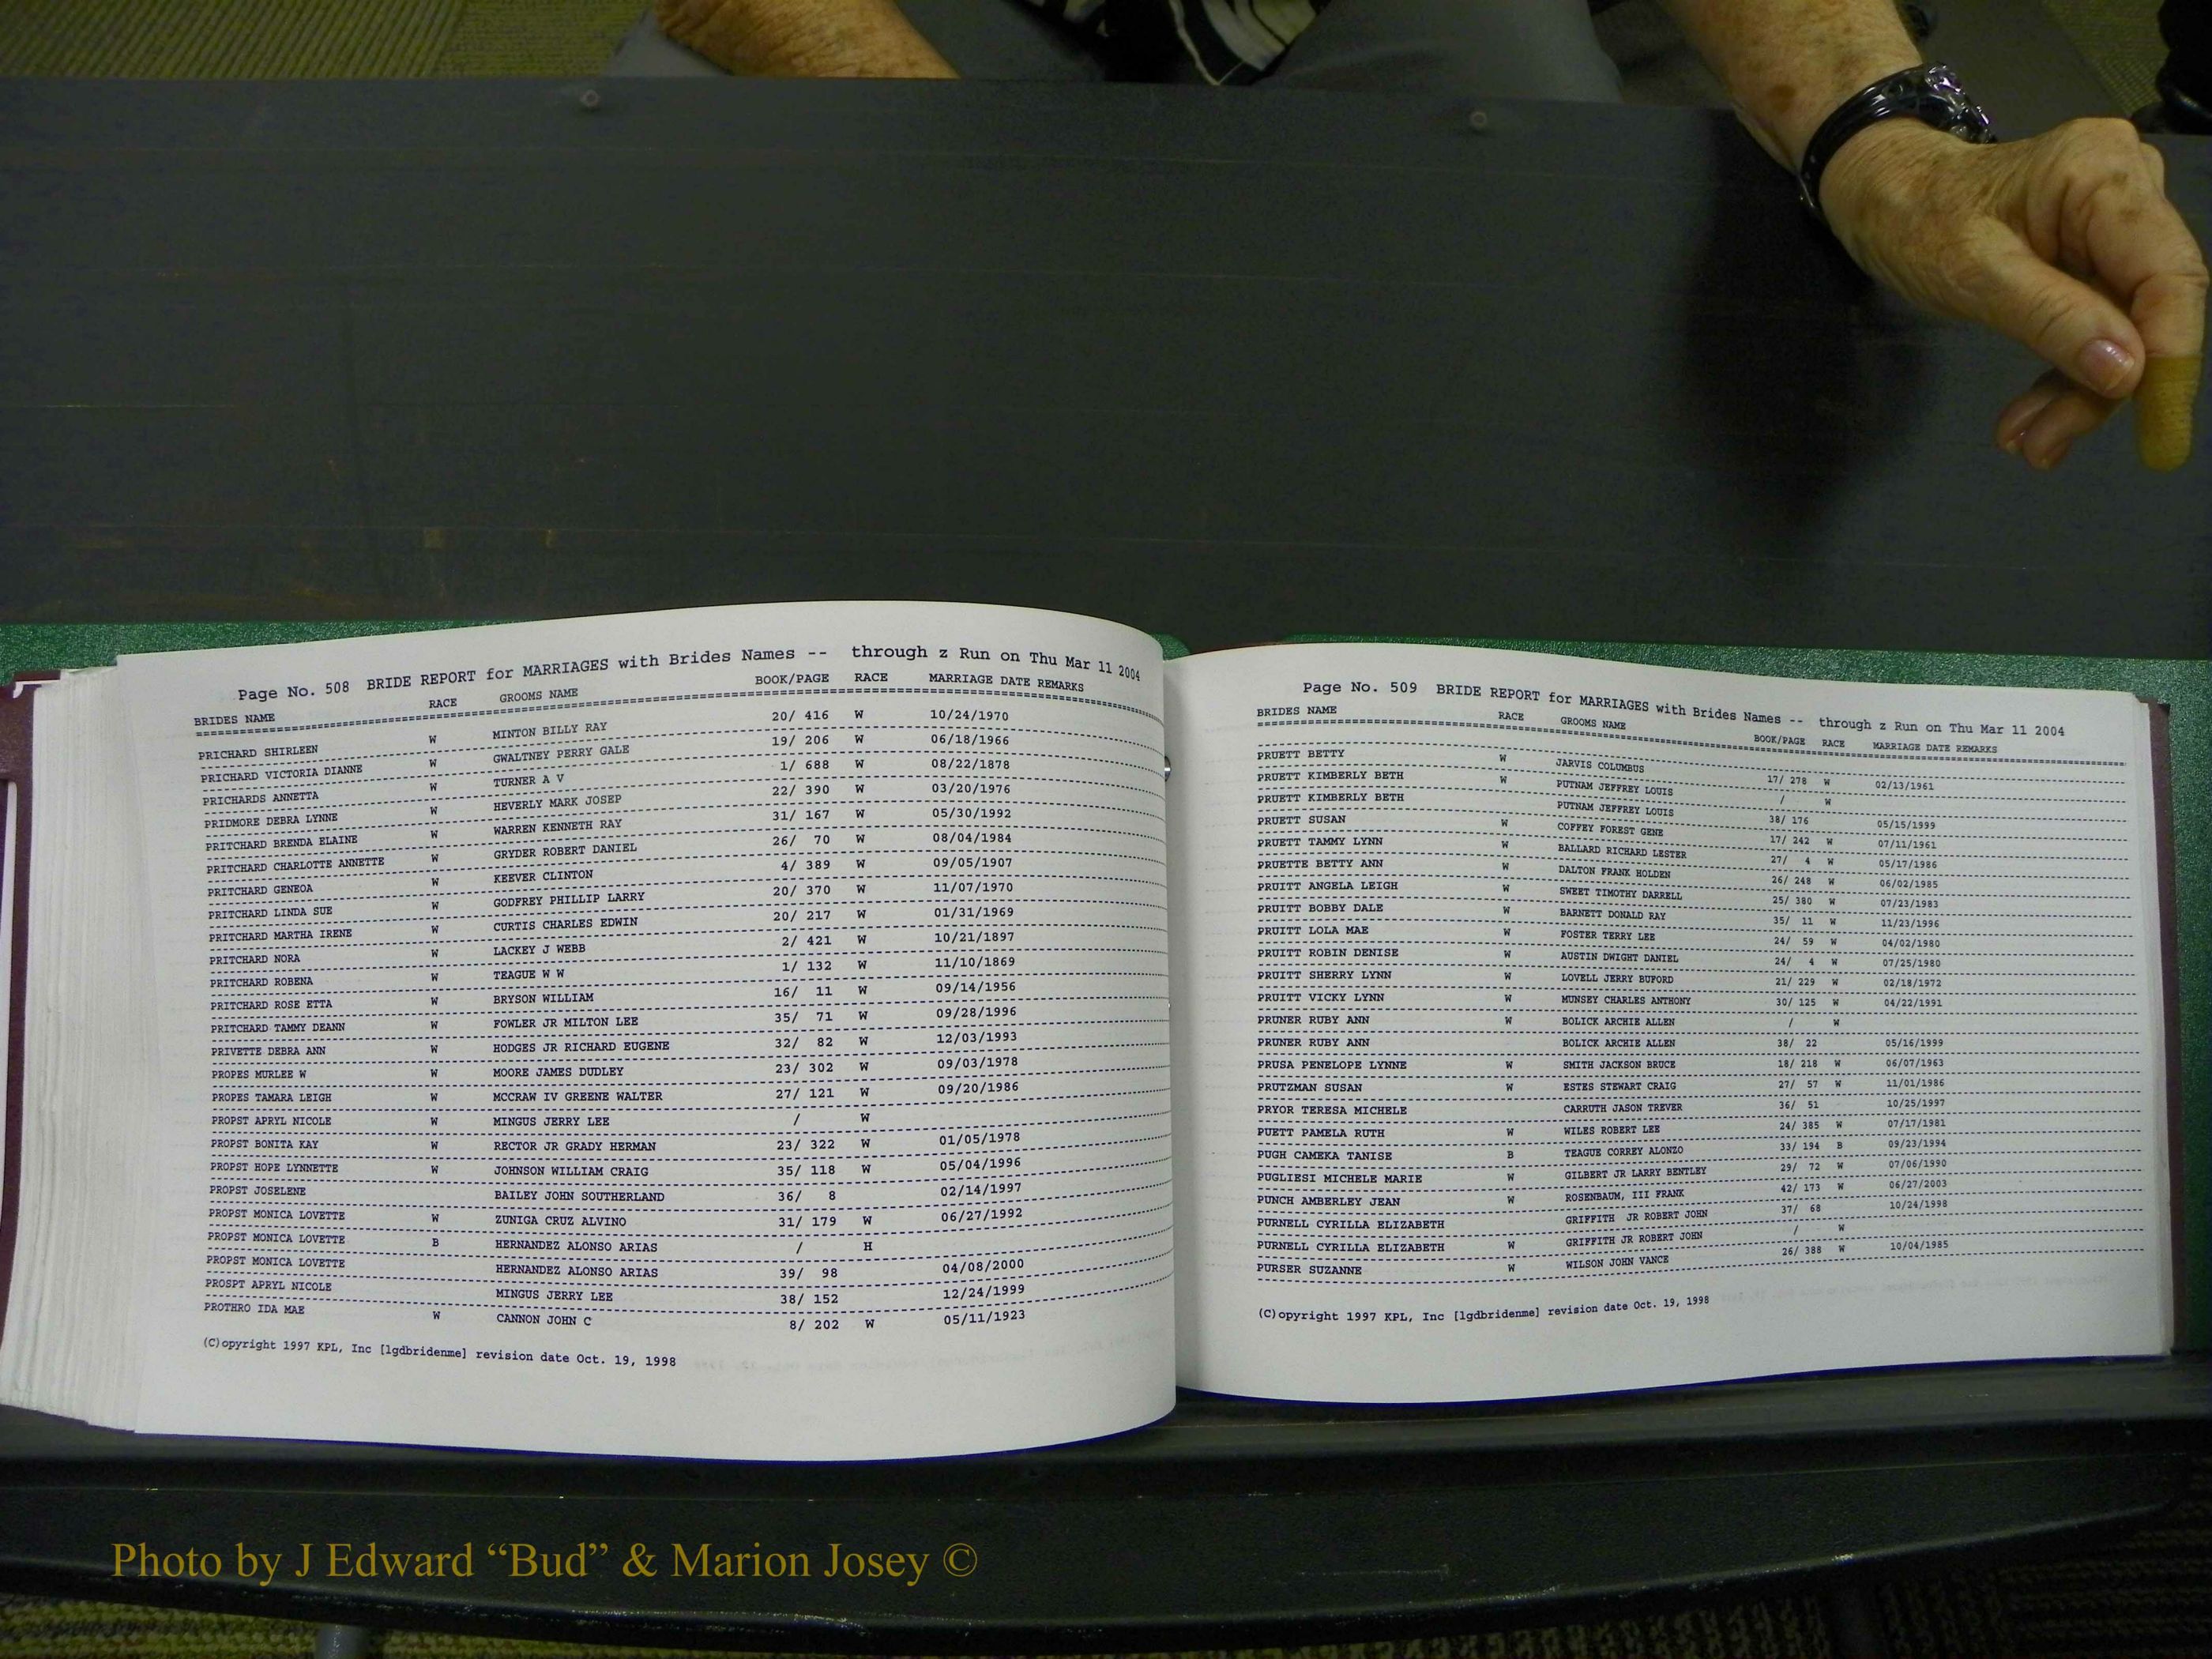 Page No. 508 BRIDE REPORT for MARRIAGES with Brides Names -- through z Run on Thu Mar 11 2004
BRIDES NAME RACE GROOMS NAME BOOK/PAGE RACE MARRIAGE DATE REMARKS
PRICHARD SHIRLEEN W MINTON BILLY RAY 20/ 416 W 10/24/1970
PRICHARD VICTORIA DIANNE W GWALTNEY PERRY GALE 19/ 206 W 06/18/1966
PRICHARDS ANNETTA W TURNER A V 1/ 688 W 08/22/1878
PRIDMORE DEBRA LYNNE W HEVERLY MARK JOSEP 22/ 390 W 03/20/1976
PRITCHARD BRENDA ELAINE W WARREN KENNETH RAY 31/ 167 W 05/30/1992
PRITCHARD CHARLOTTE ANNETTE W GRYDER ROBERT DANIEL 26/ 70 W 08/04/1984
PRITCHARD GENEOA W KEEVER CLINTON 4/ 389 W 09/05/1907
PRITCHARD LINDA SUE W GODFREY PHILLIP LARRY 20/ 370 W 11/07/1970
PRITCHARD MARTHA IRENE W CURTIS CHARLES EDWIN 20/ 217 W 01/31/1969
PRITCHARD NORA W LACKEY J WEBB 2/ 421 W 10/21/1897
PRITCHARD ROBENA W TEAGUE W W 1/ 132 W 11/10/1869
PRITCHARD ROSE ETTA W BRYSON WILLIAM 16/ 11 W 09/14/1956
PRITCHARD TAMMY DEANN W FOWLER JR MILTON LEE 35/ 71 W 09/28/1996
PRIVETTE DEBRA ANN W HODGES JR RICHARD EUGENE 32/ 82 W 12/03/1993
PROPES MURLEE W W MOORE JAMES DUDLEY 23/ 302 W 09/03/1978
PROPES TAMARA LEIGH W MCCRAW IV GREENE WALTER 27/ 121 W 09/20/1986
PROPST APRYL NICOLE W MINGUS JERRY LEE / W
PROPST BONITA KAY W RECTOR JR GRADY HERMAN 23/ 322 W 01/05/1978
PROPST HOPE LYNNETTE W JOHNSON WILLIAM CRAIG 35/ 118 W 05/04/1996
PROPST JOSELENE BAILEY JOHN SOUTHERLAND 36/ 8 02/14/1997
PROPST MONICA LOVETTE W ZUNIGA CRUZ ALVINO 31/ 179 W 06/27/1992
PROPST MONICA LOVETTE B HERNANDEZ ALONSO ARIAS / H
PROPST MONICA LOVETTE HERNANDEZ ALONSO ARIAS 39/ 98 04/08/2000
PROSPT APRYL NICOLE MINGUS JERRY LEE 38/ 152 12/24/1999
PROTHRO IDA MAE W CANNON JOHN C 8/ 202 W 05/11/1923
(C)opyright 1997 KPL, Inc [lgdbridenme] revision date Oct. 19, 1998
Page No. 509 BRIDE REPORT for MARRIAGES with Brides Names -- through z Run on Thu Mar 11 2004
BRIDES NAME RACE GROOMS NAME BOOK/PAGE RACE MARRIAGE DATE REMARKS
PRUETT BETTY W JARVIS COLUMBUS 17/ 278 W 02/13/1961
PRUETT KIMBERLY BETH W PUTNAM JEFFREY LOUIS / W
PRUETT KIMBERLY BETH PUTNAM JEFFREY LOUIS 38/ 176 05/15/1999
PRUETT SUSAN W COFFEY FOREST GENE 17/ 242 W 07/11/1961
PRUETT TAMMY LYNN W BALLARD RICHARD LESTER 27/ 4 W 05/17/1986
PRUETTE BETTY ANN W DALTON FRANK HOLDEN 26/ 248 W 06/02/1985
PRUITT ANGELA LEIGH W SWEET TIMOTHY DARRELL 25/ 380 W 07/23/1983
PRUITT BOBBY DALE W BARNETT DONALD RAY 35/ 11 W 11/23/1996
PRUITT LOLA MAE W FOSTER TERRY LEE 24/ 59 W 04/02/1980
PRUITT ROBIN DENISE W AUSTIN DWIGHT DANIEL 24/ 4 W 07/25/1980
PRUITT SHERRY LYNN W LOVELL JERRY BUFORD 21/ 229 W 02/18/1972
PRUITT VICKY LYNN W MUNSEY CHARLES ANTHONY 30/ 125 W 04/22/1991
PRUNER RUBY ANN W BOLICK ARCHIE ALLEN / W
PRUNER RUBY ANN BOLICK ARCHIE ALLEN 38/ 22 05/16/1999
PRUSA PENELOPE LYNNE W SMITH JACKSON BRUCE 18/ 218 W 06/07/1963
PRUTZMAN SUSAN W ESTES STEWART CRAIG 27/ 57 W 11/01/1986
PRYOR TERESA MICHELE CARRUTH JASON TREVER 36/ 51 10/25/1997
PUETT PAMELA RUTH W WILES ROBERT LEE 24/ 385 W 07/17/1981
PUGH CAMEKA TANISE B TEAGUE CORREY ALONZO 33/ 194 B 09/23/1994
PUGLIESI MICHELE MARIE W GILBERT JR LARRY BENTLEY 29/ 72 W 07/06/1990
PUNCH AMBERLEY JEAN W ROSENBAUM, III FRANK 42/ 173 W 06/27/2003
PURNELL CYRILLA ELIZABETH GRIFFITH JR ROBERT JOHN 37/ 68 10/24/1998
PURNELL CYRILLA ELIZABETH W GRIFFITH JR ROBERT JOHN / W
PURSER SUZANNE W WILSON JOHN VANCE 26/ 388 W 10/04/1985
(C)opyright 1997 KPL, Inc [lgdbridenme] revision date Oct. 19, 1998
Photo by J Edward “Bud” & Marion Josey ©